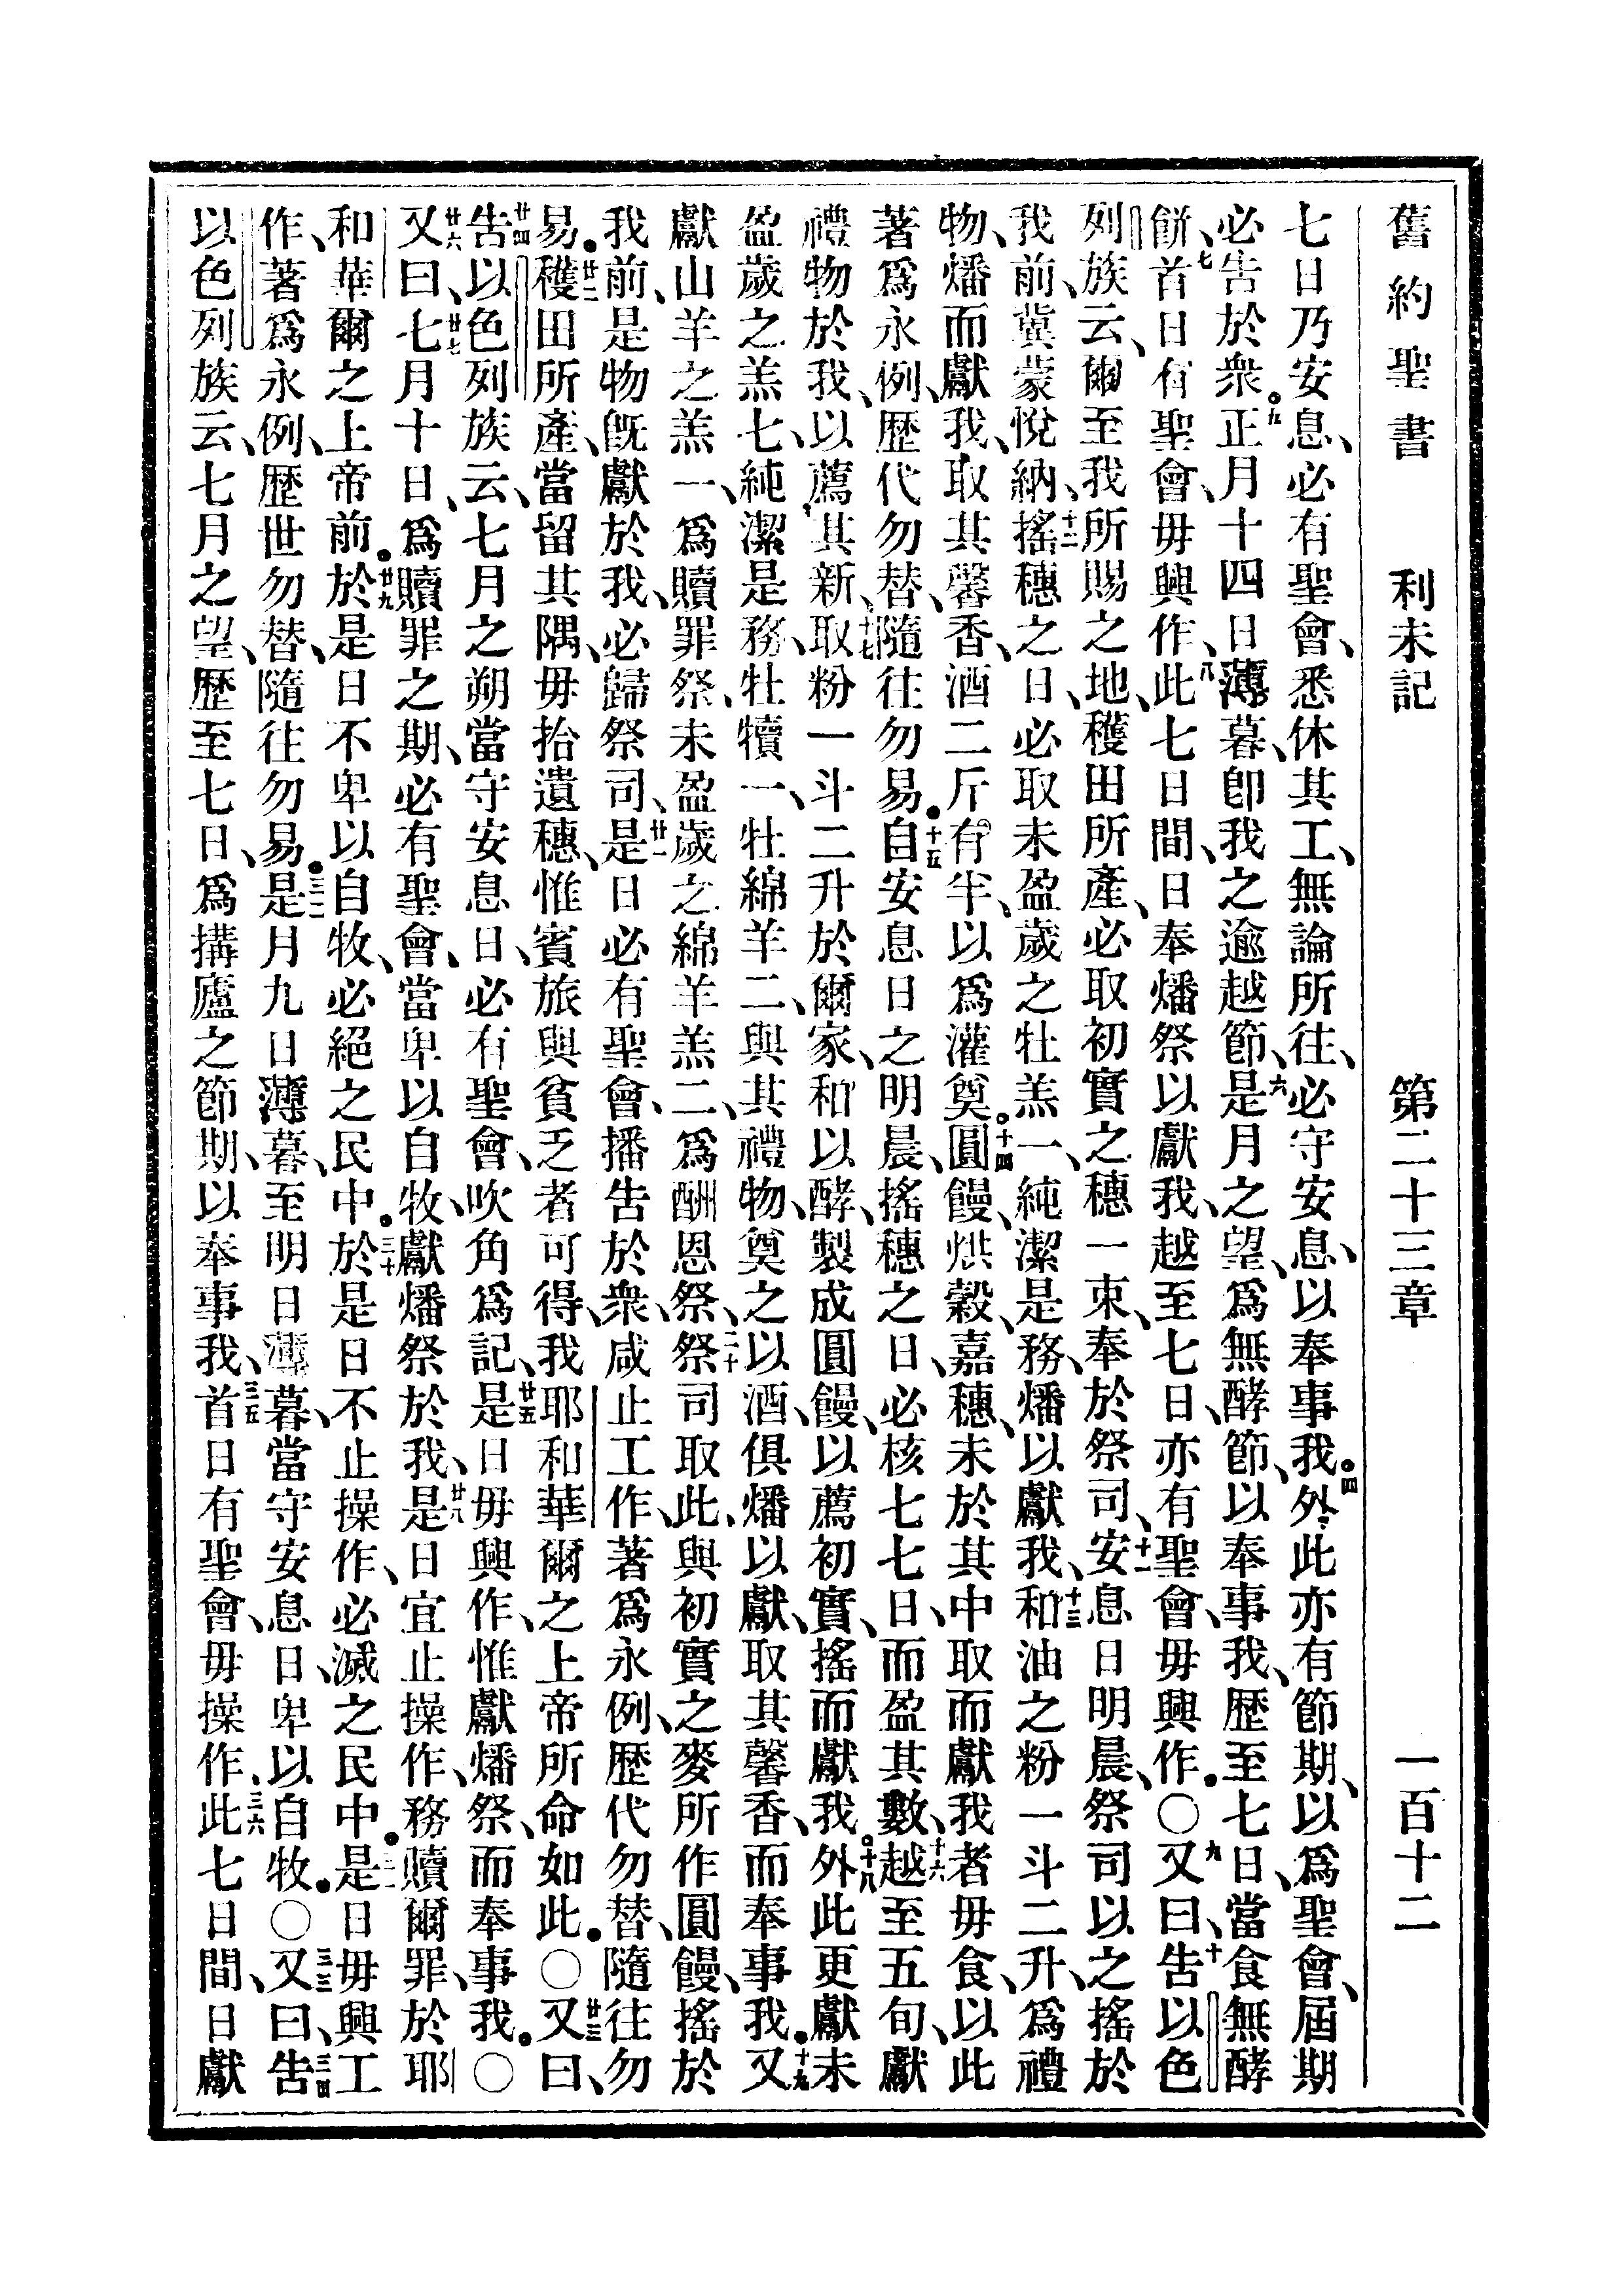 舊約聖書 利未記 第二十三章 一百十二
七日乃安息、必有聖會、悉休其工、無論所往、必守安息、以奉事我。四外此亦有節期、以爲聖會、屆期
必告於衆。五正月十四日薄暮、卽我之逾越節、六是月之望、爲無酵節、以奉事我、歷至七日、當食無酵
餅、七首日有聖會、毋興作、八此七日間、日奉燔祭以獻我、越至七日、亦有聖會、毋興作。〇九又曰、十告以色
列族云、爾至我所賜之地、穫田所產、必取初實之穗一束、奉於祭司、十一安息日明晨、祭司以之搖於
我前、冀蒙悅納、十二搖穗之日、必取未盈歲之牡羔一、純潔是務、燔以獻我、十三和油之粉一斗二升、爲禮
物、燔而獻我、取其馨香、酒二斤有半、以爲灌奠。十四圓饅、烘穀、嘉穗、未於其中取而獻我者毋食、以此
著爲永例、歷代勿替、隨往勿易。十五自安息日之明晨、搖穗之日、必核七七日、而盈其數、十六越至五旬、獻
禮物於我、以薦其新、十七取粉一斗二升於爾家、和以酵、製成圓饅、以薦初實、搖而獻我。十八外此更獻未
盈歲之羔七、純潔是務、牡犢一、牡綿羊二、與其禮物、奠之以酒、俱燔以獻、取其馨香、而奉事我。十九又
獻山羊之羔一、爲贖罪祭、未盈歲之綿羊羔二、爲酬恩祭、二十祭司取此、與初實之麥所作圓饅、搖於
我前、是物旣獻於我、必歸祭司、廿一是日必有聖會、播告於衆、咸止工作、著爲永例、歷代勿替、隨往勿
易。廿二穫田所產、當留其隅、毋拾遺穗、惟賓旅與貧乏者可得、我耶和華爾之上帝所命如此。〇廿三又曰、
廿四告以色列族云、七月之朔、當守安息日、必有聖會、吹角爲記、廿五是日毋興作、惟獻燔祭、而奉事我。〇
廿六又曰、廿七七月十日、爲贖罪之期、必有聖會、當卑以自牧、獻燔祭於我、廿八是日宜止操作、務贖爾罪、於耶
和華爾之上帝前。廿九於是日不卑以自牧、必絕之民中。三十於是日不止操作、必滅之民中。三一是日毋興工
作、著爲永例、歷世勿替、隨往勿易。三二是月九日薄暮、至明日薄暮、當守安息日、卑以自牧。〇三三又曰、三四告
以色列族云、七月之望、歷至七日、爲搆廬之節期、以奉事我、三五首日有聖會、毋操作、三六此七日間、日獻